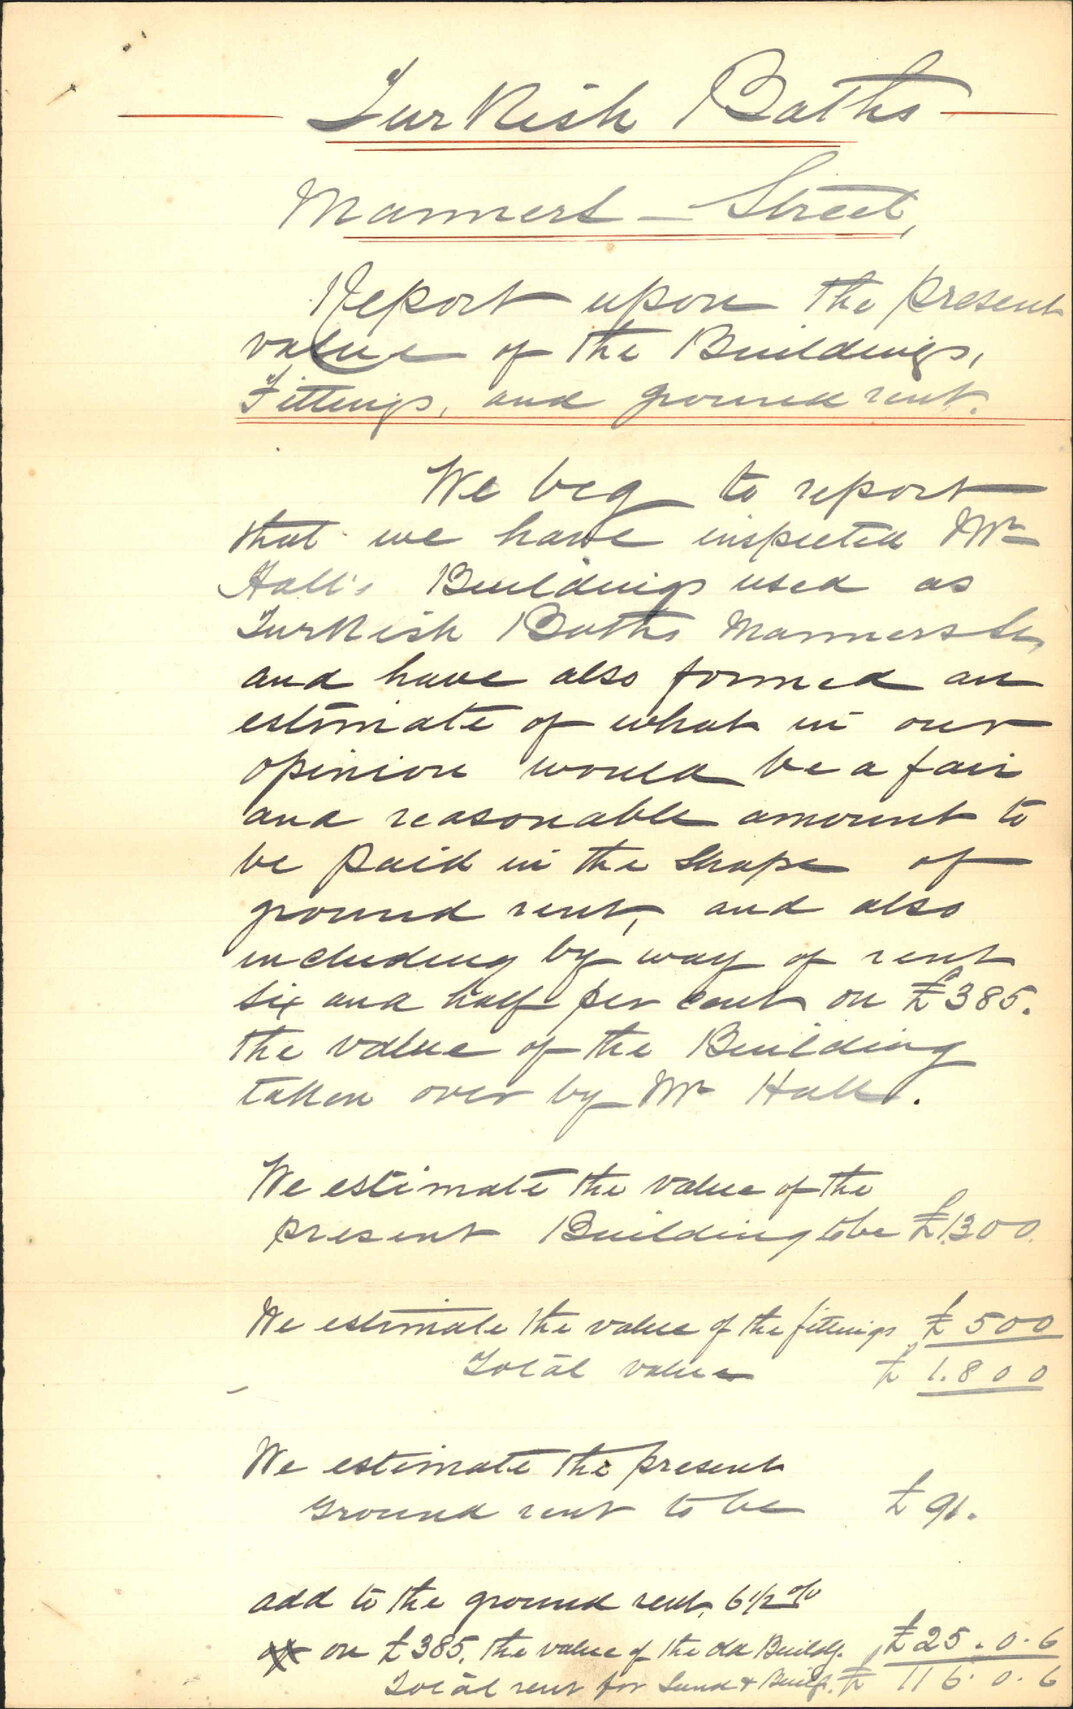 Turkish Baths
Manners - Street,
Report upon the present
value of the Buildings,
Fittings, and ground rent.
We beg to report
that we have inspected Mr
Hall's Buildings used as
Turkish Baths Manners St,
and have also formed an
estimate of what in our
opinion would be a fair
and reasonable amount to
be paid in the shape of
ground rent, and also
including by way of rent
six and half per cent on £385.
the value of the Building
taken over by Mr Hall.
We estimate the value of the
present Building to be £1300.
We estimate the value of the fittings £500
Total value £1.800
We estimate the present
ground rent to be £91.
add to the ground rent, 6 1/2 %
on £385, the value of the old Buildg. £25.0.6
Total rent for Land & Build. £116.0.6